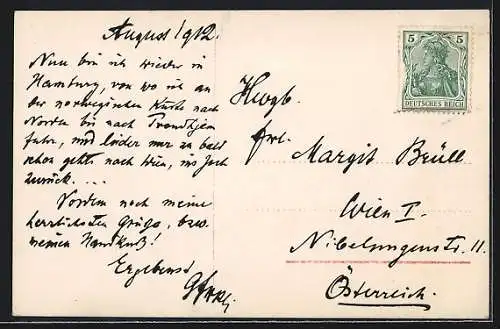 August 1912.
Nun bin ich wieder in
Hamburg, von wo ich an
der norwegischen Küste nach
Norden bis nach Trondhjem
fahre, und leider nur zu bald
schon geht's nach Wien, ins Joch
zurück. ...
Vordem noch meine
herrlichsten Grüße, bezw.
meinen Handkuß!
Ergebenst
5 5
DEUTSCHES REICH
Hwgb.
Frl.
Margit Brüll
Wien I.
Nibelungenstr. 11.
Österreich.